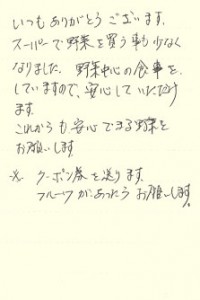 いつもありがとうございます.
スーパーで野菜を買う事も少なく
なりました. 野菜中心の食事を.
していますので、安心していただけ
ます.
これからも安心できる野菜を
お願いします.
※ クーポン券を送ります.
フルーツがあったらお願いします.